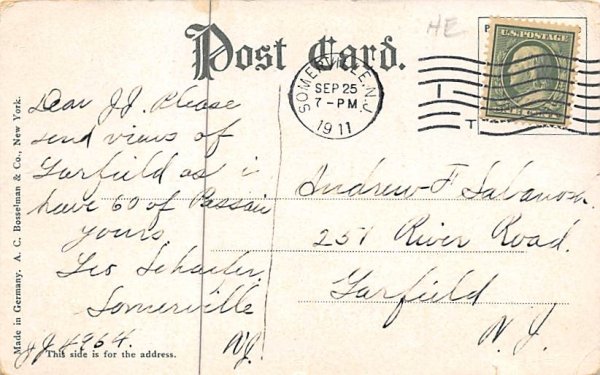 HE
Post Card.
U.S. POSTAGE
SOMERVILLE, N.J.
SEP 25
7-PM
1911
Dear J.J. Please
send views of
Garfield as i
have 60 of Passaic
yours,
Leo Schaefer,
Somerville
N.J.
JJ 4964.
Andrew F.
251 River Road.
Garfield
N.J.
This side is for the address.
Made in Germany. A. C. Bosselman & Co., New York.